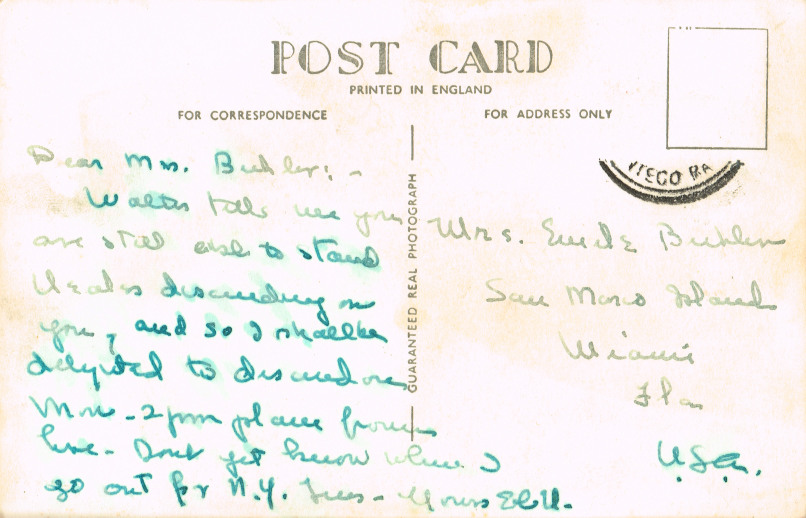 POST CARD
PRINTED IN ENGLAND
FOR CORRESPONDENCE
FOR ADDRESS ONLY
GUARANTEED REAL PHOTOGRAPH
TEGO BA
Dear Mrs. Buhler: -
Walter tells me you
are still able to stand
descending on
you, and so I shall be
delighted to descend on
Mon - 2 pm plane from
here - Dont yet know when I
go out for N.Y. Tues - Yours
Mrs. Emile Buhler
San Marco Island
Miami
Fla
U.S.A.